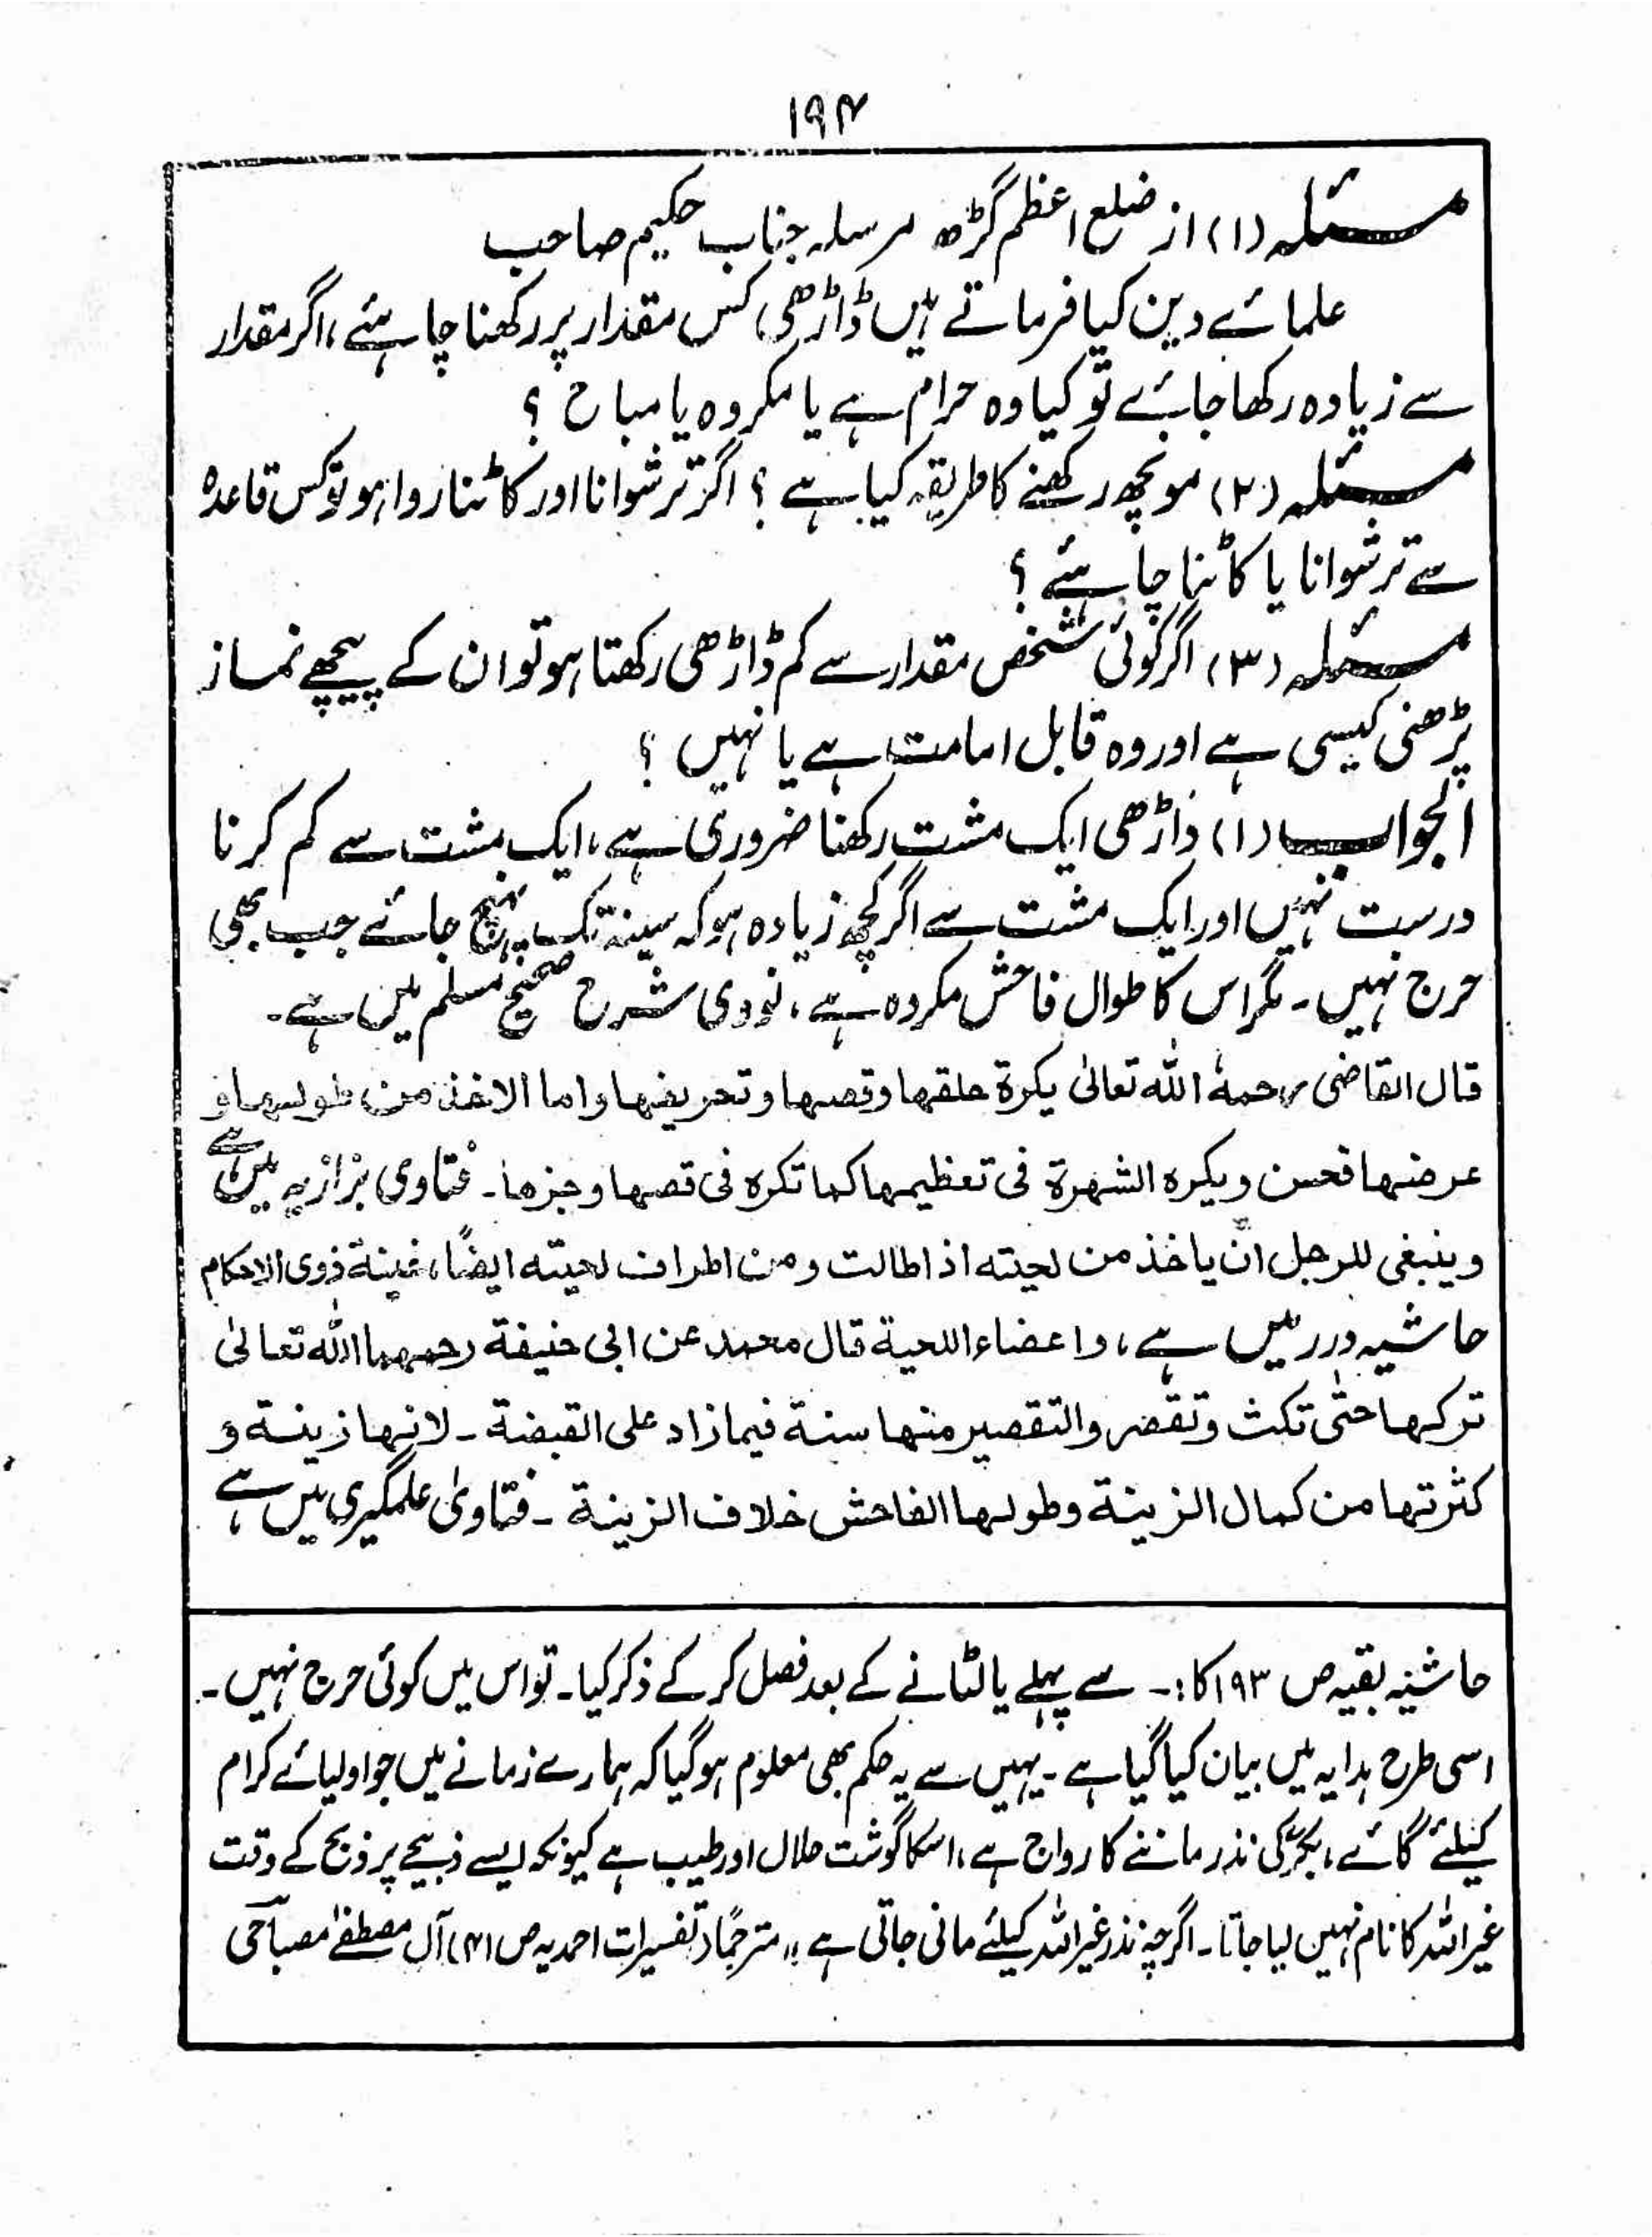 ۱۹۴
مسئلہ (۱) از ضلع اعظم گڑھ مرسلہ جناب حکیم صاحب
علمائے دین کیا فرماتے ہیں ڈاڑھی کس مقدار پر رکھنا چاہئے ، اگر مقدار
سے زیادہ رکھا جائے تو کیا وہ حرام ہے یا مکروہ یا مباح ؟
مسئلہ (۲) مونچھ رکھنے کا طریقہ کیا ہے ؟ اگر ترشوانا اور کاٹنا روا ہو تو کس قاعدہ
سے ترشوانا یا کاٹنا چاہئے ؟
مسئلہ (۳) اگر کوئی شخص مقدار سے کم ڈاڑھی رکھتا ہو تو ان کے پیچھے نماز
پڑھنی کیسی ہے اور وہ قابل امامت ہے یا نہیں ؟
الجواب (۱) ڈاڑھی ایک مشت رکھنا ضروری ہے ، ایک مشت سے کم کرنا
درست نہیں اور ایک مشت سے اگر کچھ زیادہ ہو کہ سینہ تک پہنچ جائے جب بھی
حرج نہیں ۔ مگر اس کا طوال فاحش مکروہ ہے ، نووی شرح صحیح مسلم میں ہے ۔
قال القاضی رحمہ اللہ تعالیٰ یکرہ حلقہا وقصہا وتحریفہا واما الاخذ من طولہا و
عرضہا فحسن ویکرہ الشہرۃ فی تعظیمہا کما تکرہ فی قصہا وجزھا ۔ فتاوی بزازیہ میں ہے
وینبغی للرجل ان یاخذ من لحیتہ اذا طالت ومن اطراف لحیتہ ایضًا ، غنیۃ ذوی الاحکام
حاشیہ درر میں ہے ، واعفاء اللحیۃ قال محمد عن ابی حنیفۃ رحمہما اللہ تعالیٰ
ترکہا حتٰی تکث وتقصر والتقصیر منہا سنۃ فیما زاد علی القبضۃ ۔ لانہا زینۃ و
کثرتہا من کمال الزینۃ وطولہا الفاحش خلاف الزینۃ ۔ فتاویٰ علمگیری میں ہے
حاشیہ بقیہ ص ۱۹۳ کا :۔ سے پہلے یا لٹانے کے بعد فصل کر کے ذکر کیا ۔ تو اس میں کوئی حرج نہیں ۔
اسی طرح ہدایہ میں بیان کیا گیا ہے ۔ یہیں سے یہ حکم بھی معلوم ہو گیا کہ ہمارے زمانے میں جو اولیائے کرام
کیلئے گائے ، بکرے کی نذر ماننے کا رواج ہے ، اسکا گوشت حلال اور طیب ہے کیونکہ ایسے ذبیحے پر ذبح کے وقت
غیر اللہ کا نام نہیں لیا جاتا ۔ اگرچہ نذر غیر اللہ کیلئے مانی جاتی ہے ،، مترجمًا (تفسیرات احمدیہ ص ۴۱) آل مصطفےٰ مصباحی